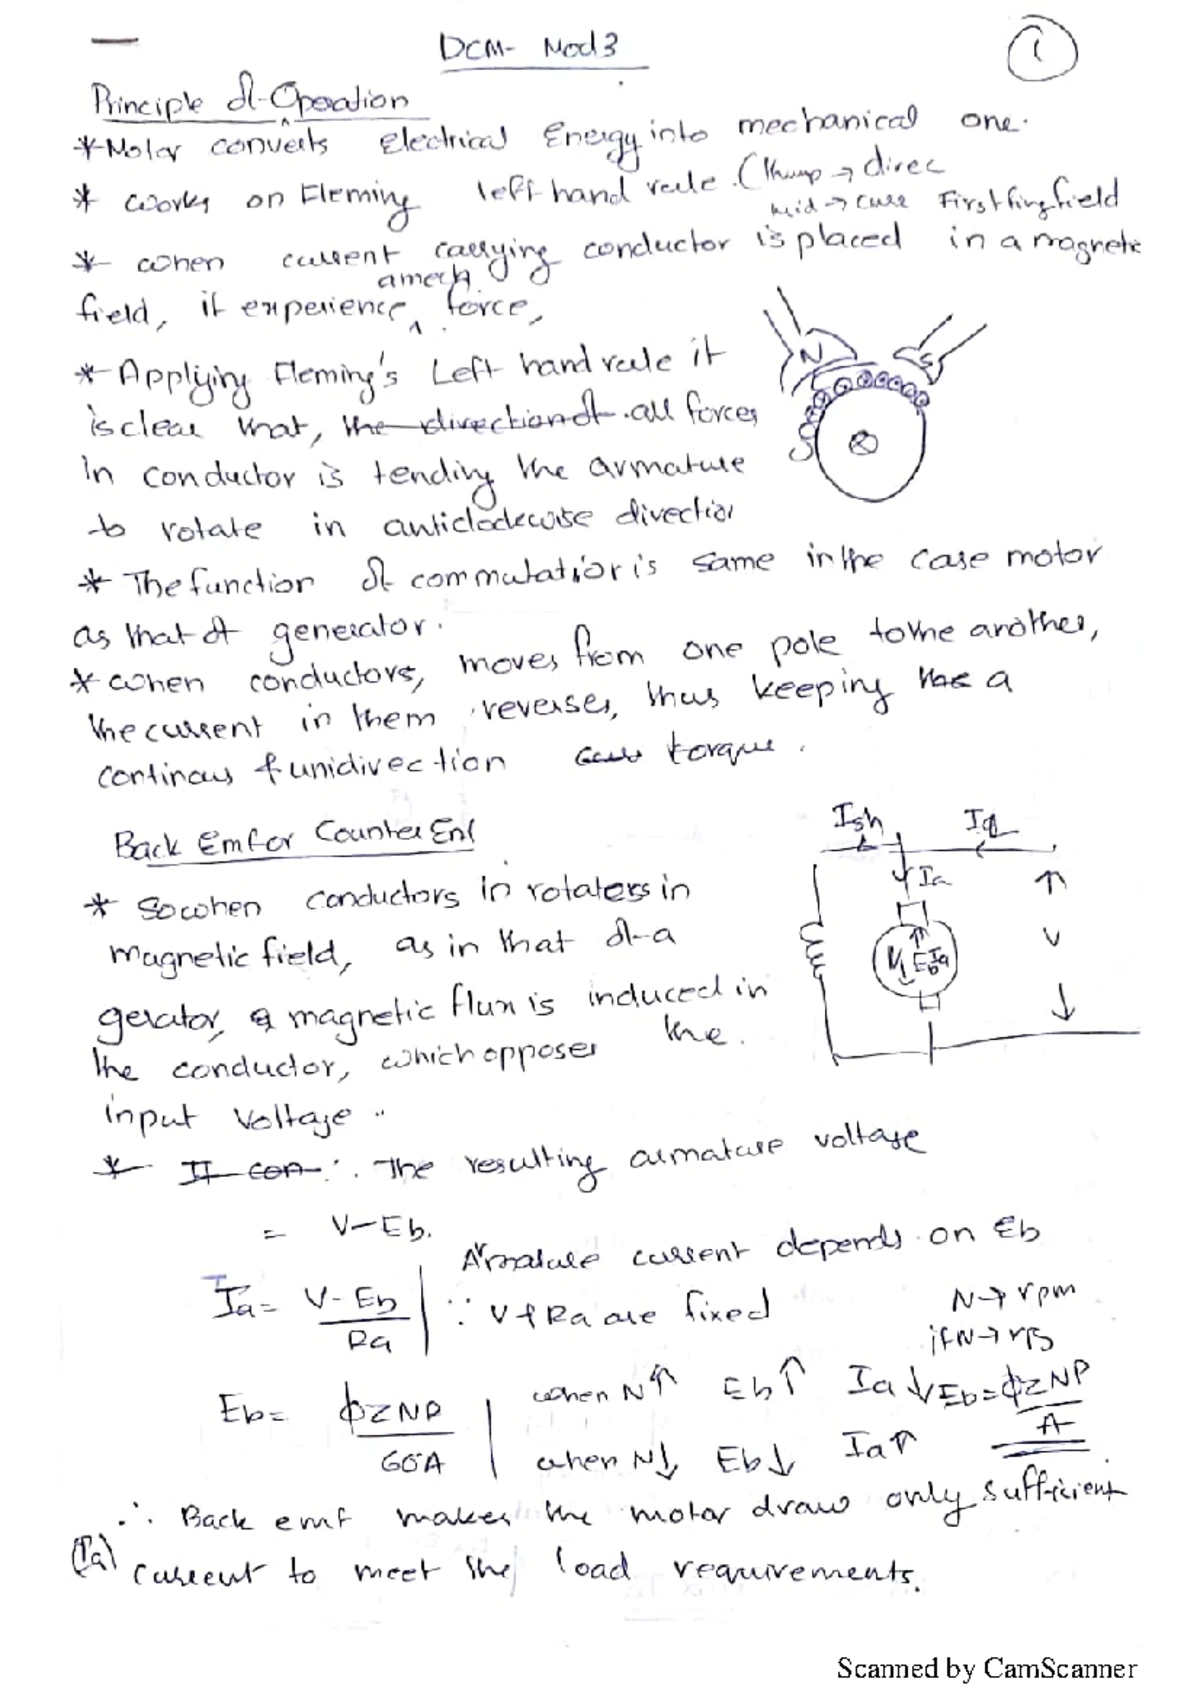 DCM- Mod3
1
Principle of Operation
* Motor converts electrical Energy into mechanical one.
* works on Fleming left hand rule. (Thump → direc
mid → curr First fing field
* when current carrying conductor is placed in a magnetic
field, it experience a mech force,
* Applying Fleming's Left hand rule it
is clear that, the direction of all forces
in conductor is tending the armature
to rotate in anticlockwise direction
N S
* The function of commutation is same in the case motor
as that of generator.
* when conductors, moves from one pole to the another,
the current in them reverses, thus keeping a
continous & unidirection torque.
Back Emf or Counter Emf
Ish
Ia
V
Eb
* So when conductors in rotaters in
magnetic field, as in that of a
gerator, a magnetic flux is induced in
the conductor, which opposes the
input voltage
* If con ∴ The resulting armature voltage
= V-Eb.
Armature current depends on Eb
Ia = V-Eb / Ra
∵ V & Ra are fixed
N → rpm
if N → rps
Eb = ϕZNP / 60A
when N↑ Eb↑ Ia↓
Eb = ϕZNP / A
when N↓ Eb↓ Ia↑
∴ Back emf makes the motor draw only sufficient
(Ia) current to meet the load requirements.
Scanned by CamScanner